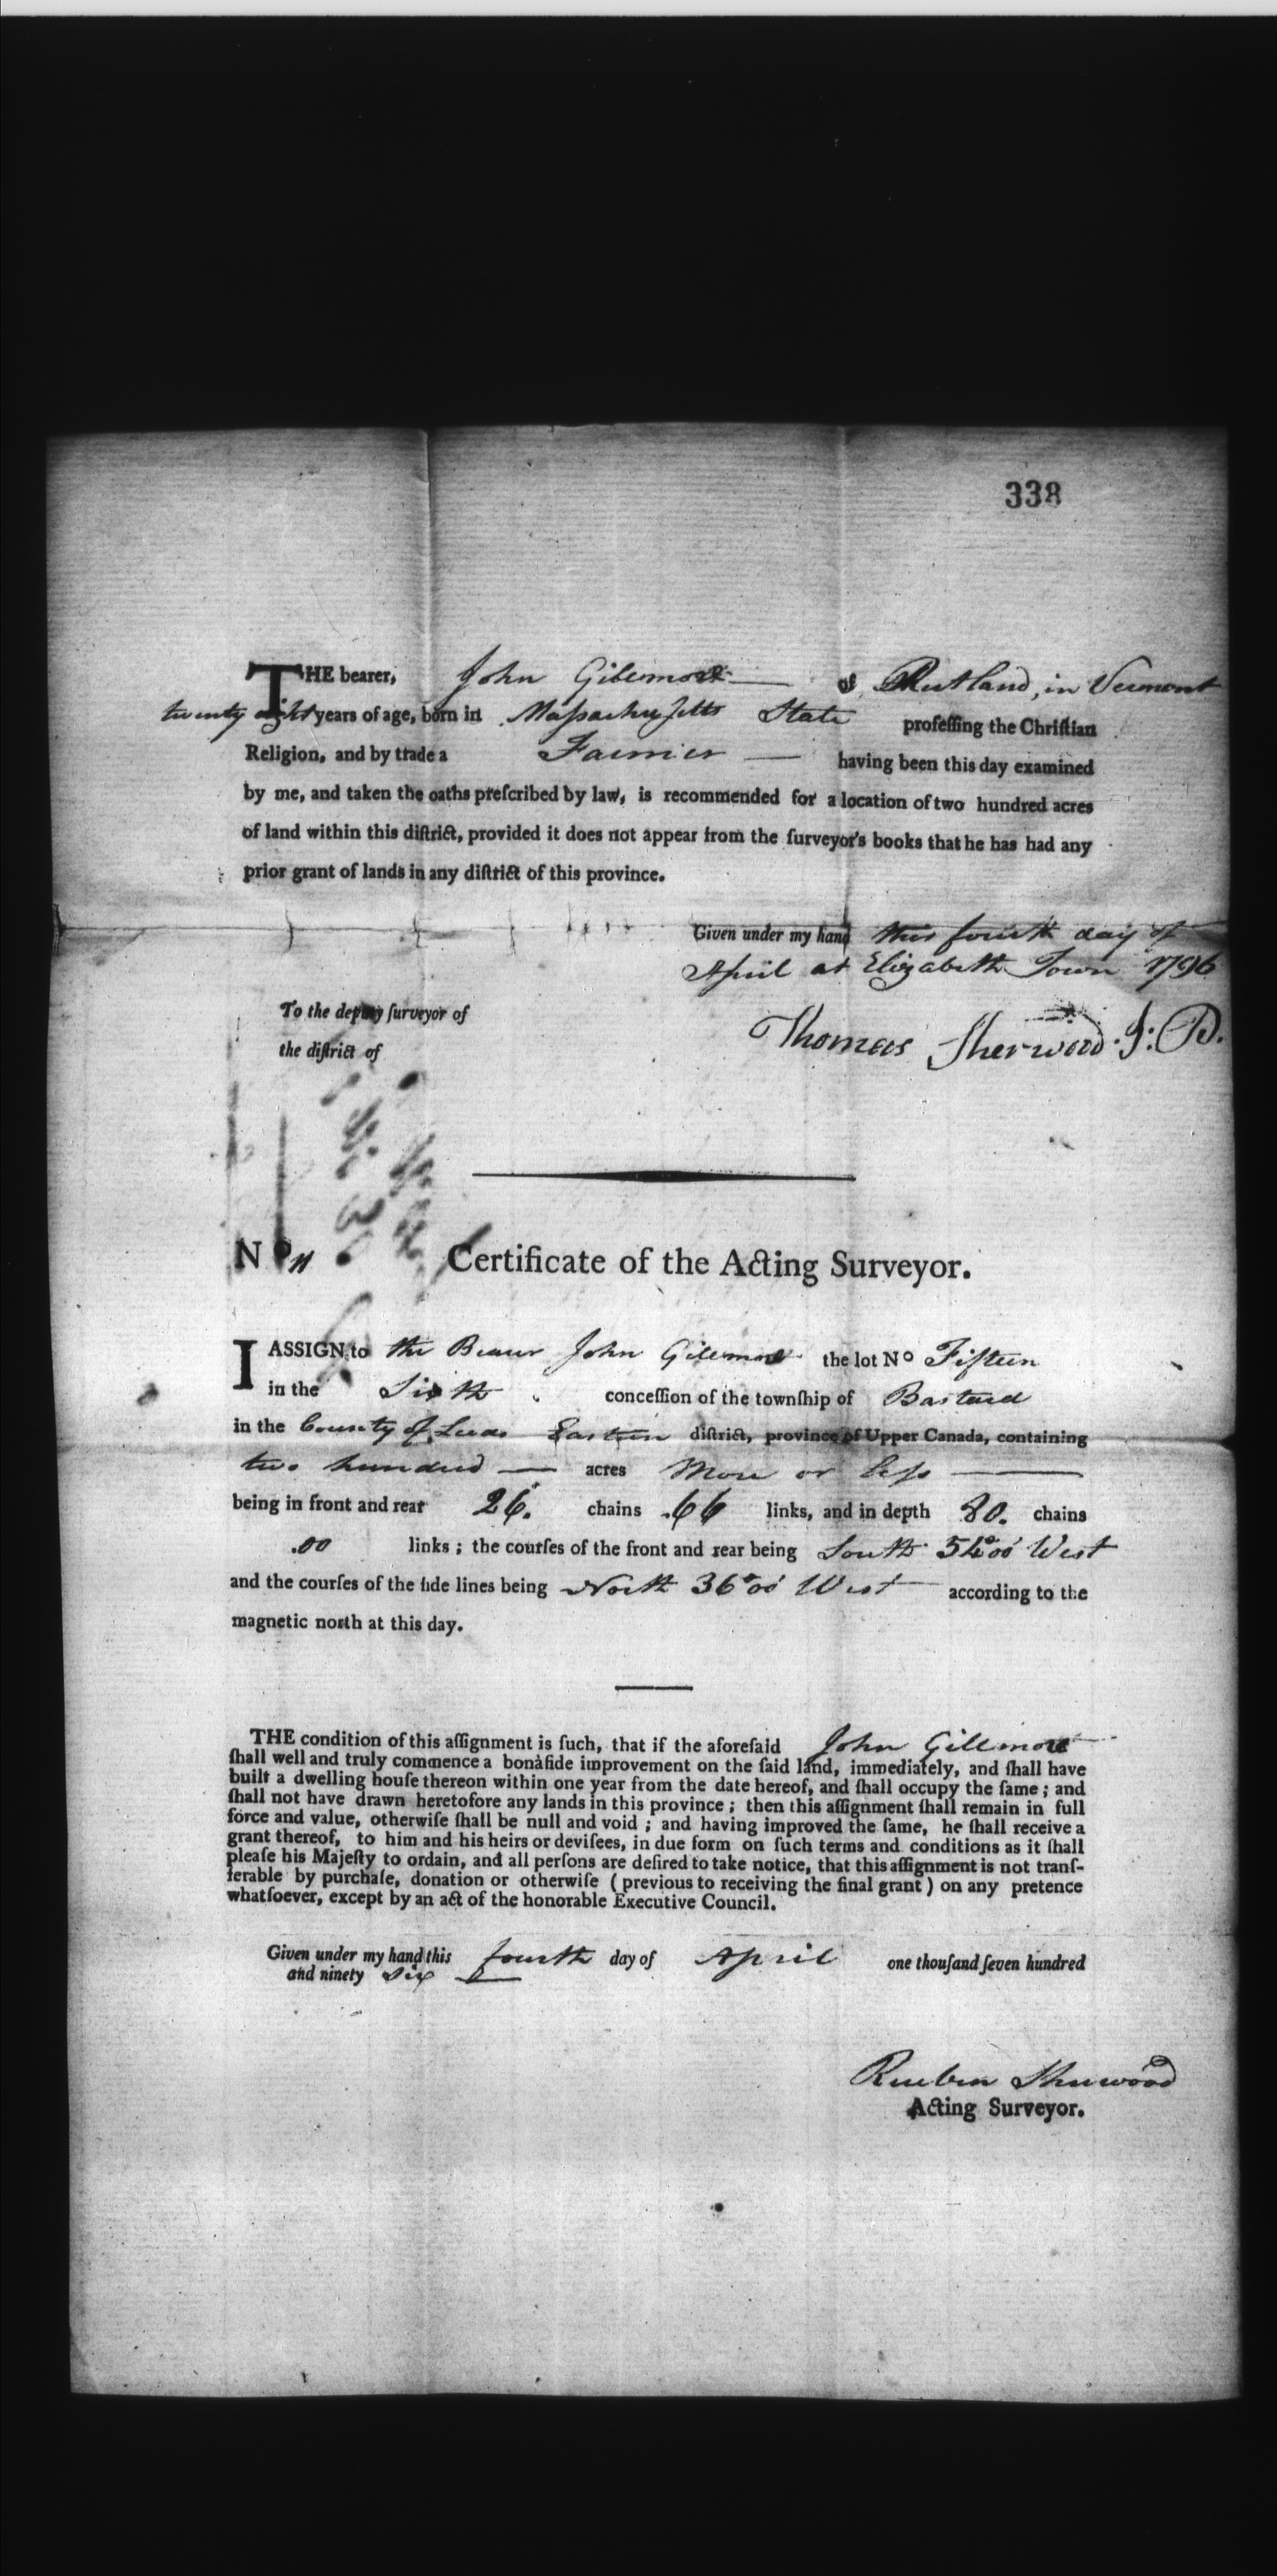 338
THE bearer, John Gillmore of Rutland, in Vermont
twenty eight years of age, born in Maſsachuſetts State profeſſing the Chriſtian
Religion, and by trade a Farmer having been this day examined
by me, and taken the oaths preſcribed by law, is recommended for a location of two hundred acres
of land within this diſtrict, provided it does not appear from the ſurveyor's books that he has had any
prior grant of lands in any diſtrict of this province.
Given under my hand this fourth day of
April at Elizabeth Town 1796
To the deputy ſurveyor of
the diſtrict of
Thomas Sherwood J: P.
No Certificate of the Acting Surveyor.
I ASSIGN to the Bearer John Gillmore the lot No Fifteen
in the Sixth conceſſion of the townſhip of Bastard
in the County of Leeds Eastern diſtrict, province of Upper Canada, containing
two hundred — acres More or leſs —
being in front and rear 26. chains .66 links, and in depth 80. chains
.00 links ; the courſes of the front and rear being South 54°00' West
and the courſes of the ſide lines being North 36°00' West according to the
magnetic north at this day.
THE condition of this aſſignment is ſuch, that if the aforeſaid John Gillmore
ſhall well and truly commence a bonàfide improvement on the ſaid land, immediately, and ſhall have
built a dwelling houſe thereon within one year from the date hereof, and ſhall occupy the ſame ; and
ſhall not have drawn heretofore any lands in this province ; then this aſſignment ſhall remain in full
force and value, otherwiſe ſhall be null and void ; and having improved the ſame, he ſhall receive a
grant thereof, to him and his heirs or deviſees, in due form on ſuch terms and conditions as it ſhall
pleaſe his Majeſty to ordain, and all perſons are deſired to take notice, that this aſſignment is not tranſ-
ferable by purchaſe, donation or otherwiſe ( previous to receiving the final grant ) on any pretence
whatſoever, except by an act of the honorable Executive Council.
Given under my hand this fourth day of April one thouſand ſeven hundred
and ninety six
Reuben Sherwood
Acting Surveyor.